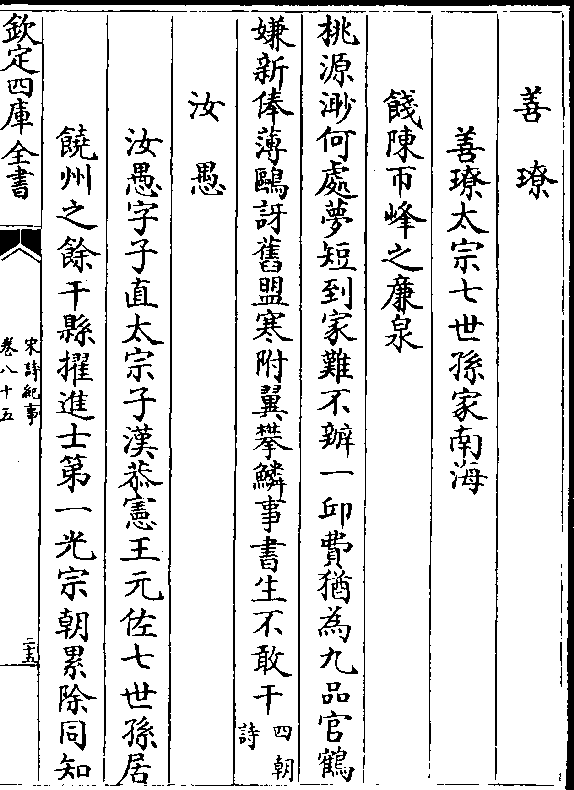 善璙
善璙太宗七世孫家南海
餞陳帀峰之亷泉
桃源渺何處夢短到家難不辦一邱費猶為九品官鶴
嫌新俸薄鷗訝舊盟寒附翼攀鱗事書生不敢干四朝詩
汝愚
汝愚字子直太宗子漢恭憲王元佐七世孫居
饒州之餘干縣擢進士第一光宗朝累除同知
欽定四庫全書
宋詩紀事
卷八十五
二十五